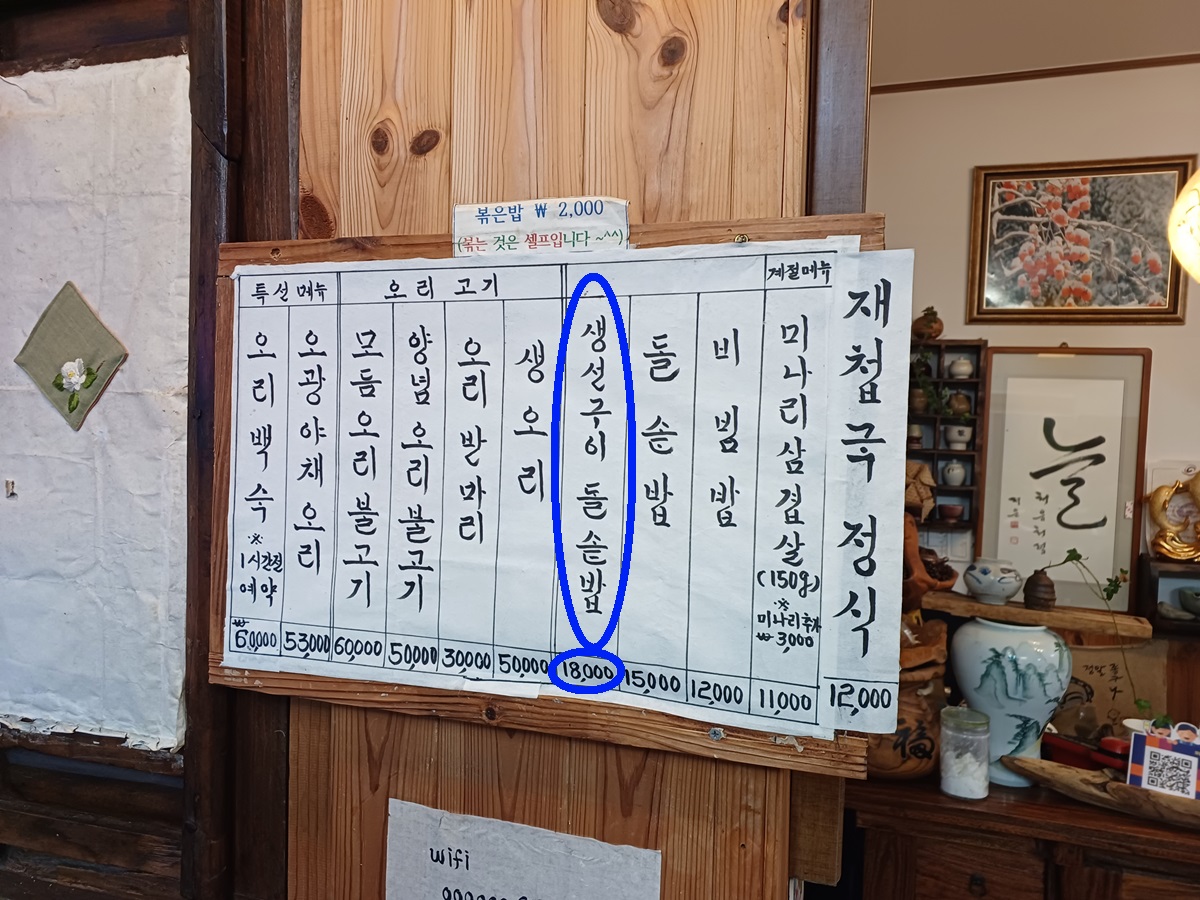 볶은밥 ₩ 2,000
(볶는 것은 셀프입니다 ~^^)
특선메뉴
오리백숙
※
1시간전
예약
₩60,000
오광야채오리
53,000
오리고기
모듬오리불고기
60,000
양념오리불고기
50,000
오리반마리
30,000
생오리
50,000
생선구이 돌솥밥
18,000
돌솥밥
15,000
비빔밥
12,000
계절메뉴
미나리삼겹살
(150g)
※
미나리추가
₩3,000
11,000
재첩국 정식
12,000
늘
wifi